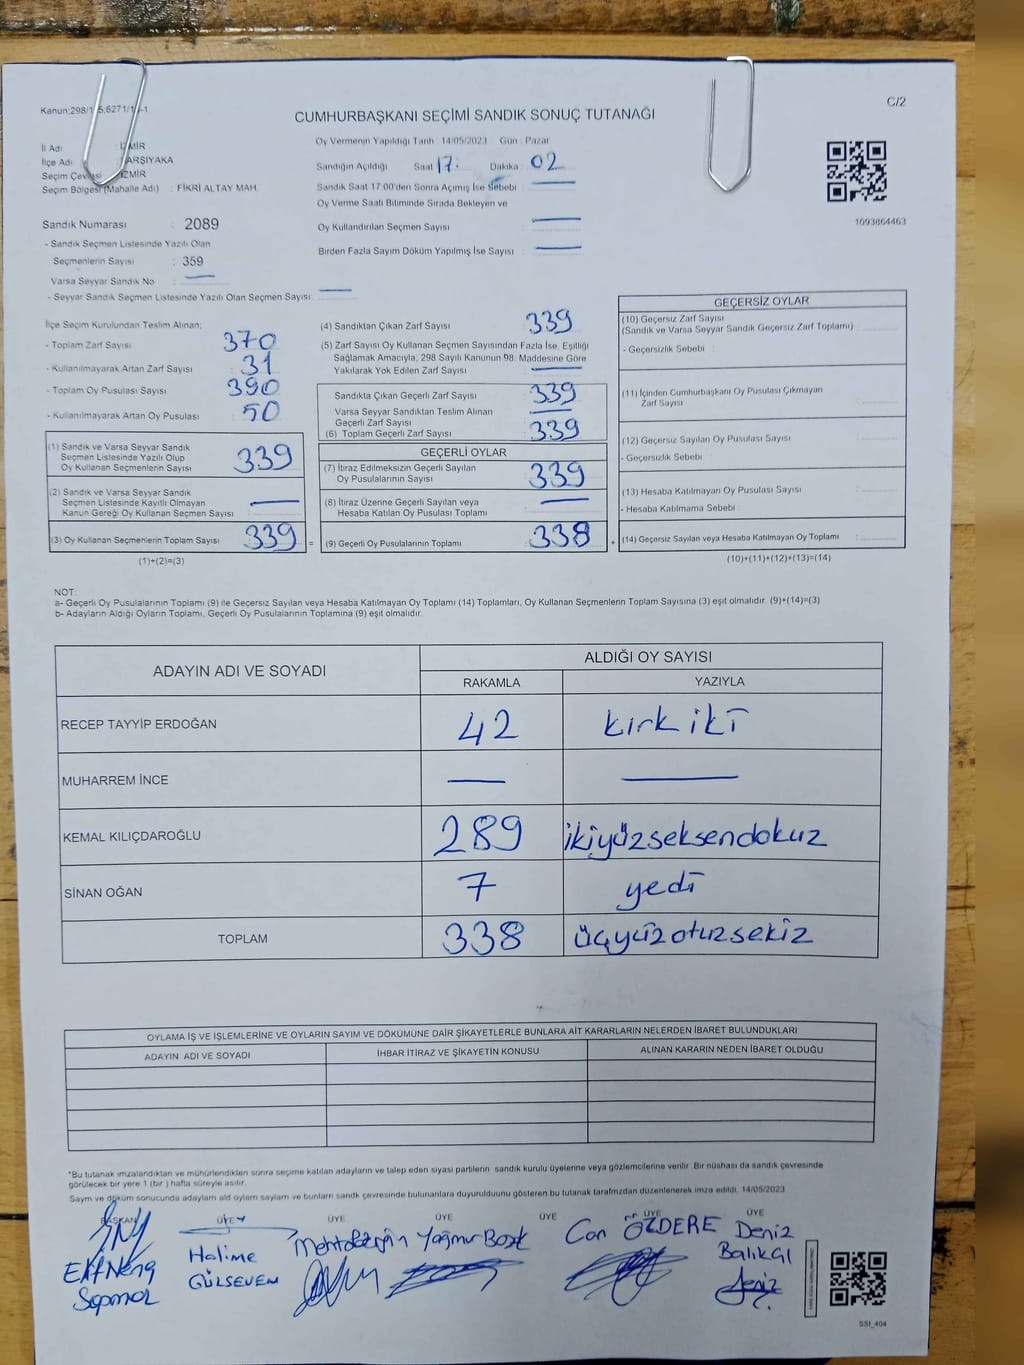 C/2
CUMHURBAŞKANI SEÇİMİ SANDIK SONUÇ TUTANAĞI
İl Adı : İZMİR
İlçe Adı : KARŞIYAKA
Seçim Çevresi : İZMİR
Seçim Bölgesi (Mahalle Adı) : FİKRİ ALTAY MAH.
Oy Vermenin Yapıldığı Tarih : 14/05/2023 Gün : Pazar
Sandığın Açıldığı Saat 17: Dakika : 02
Sandık Saat 17:00'den Sonra Açımış İse Sebebi : —
Oy Verme Saati Bitiminde Sırada Bekleyen ve
Oy Kullandırılan Seçmen Sayısı : —
Birden Fazla Sayım Döküm Yapılmış İse Sayısı : —
1093864463
Sandık Numarası : 2089
- Sandık Seçmen Listesinde Yazılı Olan
Seçmenlerin Sayısı : 359
Varsa Seyyar Sandık No : —
- Seyyar Sandık Seçmen Listesinde Yazılı Olan Seçmen Sayısı: —
İlçe Seçim Kurulundan Teslim Alınan;
- Toplam Zarf Sayısı : 370
- Kullanılmayarak Artan Zarf Sayısı : 31
- Toplam Oy Pusulası Sayısı : 390
- Kullanılmayarak Artan Oy Pusulası : 50
(1) Sandık ve Varsa Seyyar Sandık
Seçmen Listesinde Yazılı Olup
Oy Kullanan Seçmenlerin Sayısı 339
(2) Sandık ve Varsa Seyyar Sandık
Seçmen Listesinde Kayıtlı Olmayan
Kanun Gereği Oy Kullanan Seçmen Sayısı —
(3) Oy Kullanan Seçmenlerin Toplam Sayısı 339 =
(1)+(2)=(3)
(4) Sandıktan Çıkan Zarf Sayısı 339
(5) Zarf Sayısı Oy Kullanan Seçmen Sayısından Fazla İse, Eşitliği
Sağlamak Amacıyla, 298 Sayılı Kanunun 98. Maddesine Göre
Yakılarak Yok Edilen Zarf Sayısı : —
Sandıkta Çıkan Geçerli Zarf Sayısı 339
Varsa Seyyar Sandıktan Teslim Alınan
Geçerli Zarf Sayısı : —
(6) Toplam Geçerli Zarf Sayısı : 339
GEÇERLİ OYLAR
(7) İtiraz Edilmeksizin Geçerli Sayılan
Oy Pusulalarının Sayısı : 339
(8) İtiraz Üzerine Geçerli Sayılan veya
Hesaba Katılan Oy Pusulası Toplamı : —
(9) Geçerli Oy Pusulalarının Toplamı : 338 +
GEÇERSİZ OYLAR
(10) Geçersiz Zarf Sayısı
(Sandık ve Varsa Seyyar Sandık Geçersiz Zarf Toplamı)
- Geçersizlik Sebebi :
(11) İçinden Cumhurbaşkanı Oy Pusulası Çıkmayan
Zarf Sayısı
(12) Geçersiz Sayılan Oy Pusulası Sayısı
- Geçersizlik Sebebi :
(13) Hesaba Katılmayan Oy Pusulası Sayısı
- Hesaba Katılmama Sebebi :
(14) Geçersiz Sayılan veya Hesaba Katılmayan Oy Toplamı
(10)+(11)+(12)+(13)=(14)
NOT:
a- Geçerli Oy Pusulalarının Toplamı (9) ile Geçersiz Sayılan veya Hesaba Katılmayan Oy Toplamı (14) Toplamları, Oy Kullanan Seçmenlerin Toplam Sayısına (3) eşit olmalıdır. (9)+(14)=(3)
b- Adayların Aldığı Oyların Toplamı, Geçerli Oy Pusulalarının Toplamına (9) eşit olmalıdır.
ADAYIN ADI VE SOYADI
ALDIĞI OY SAYISI
RAKAMLA YAZIYLA
RECEP TAYYİP ERDOĞAN 42 kırk iki
MUHARREM İNCE — —
KEMAL KILIÇDAROĞLU 289 ikiyüzseksendokuz
SİNAN OĞAN 7 yedi
TOPLAM 338 üçyüzotuzsekiz
OYLAMA İŞ VE İŞLEMLERİNE VE OYLARIN SAYIM VE DÖKÜMÜNE DAİR ŞİKAYETLERLE BUNLARA AİT KARARLARIN NELERDEN İBARET BULUNDUKLARI
ADAYIN ADI VE SOYADI İHBAR İTİRAZ VE ŞİKAYETİN KONUSU ALINAN KARARIN NEDEN İBARET OLDUĞU
*Bu tutanak imzalandıktan ve mühürlendikten sonra seçime katılan adayların ve talep eden siyasi partilerin sandık kurulu üyelerine veya gözlemcilerine verilir. Bir nüshası da sandık çevresinde
görülecek bir yere 1 (bir) hafta süreyle asılır.
Sayım ve döküm sonucunda adayların ald oyların sayların ve bunların sandk çevresinde bulunanlara duyurulduunu gösteren bu tutanak tarafmzdan düzenlenerek imza edildi. 14/05/2023
BAŞKAN ÜYE ÜYE ÜYE ÜYE ÜYE ÜYE
Halime
GÜLSEVEN
Can ÖZDERE
Deniz
Balıkçı
SSI_404